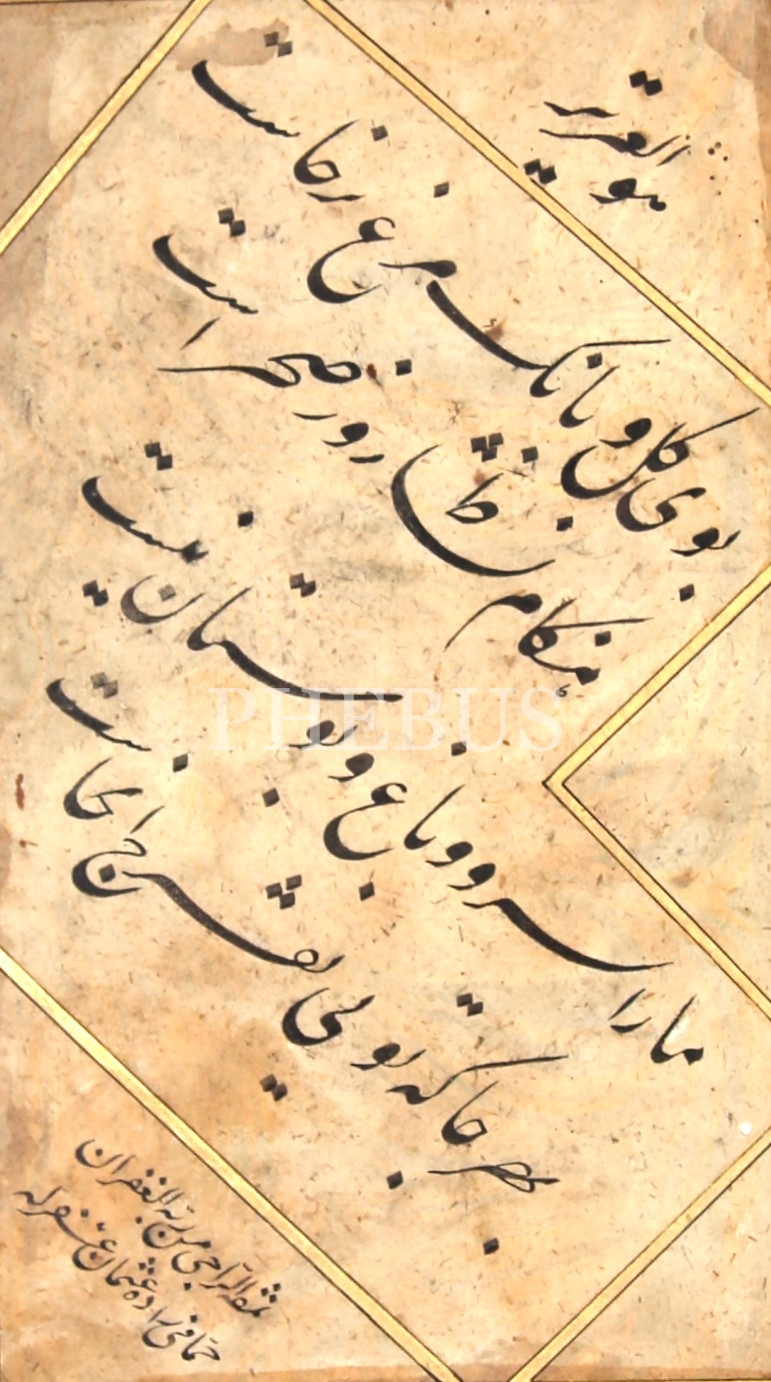 هو العزیز
بوی کل و بانک مرغ برخاست
هنکام نشاط روز صحراست
ما را سر و باغ و بوستان نیست
هر جا که تویی تفرج انجاست
نمقه الراجی من ربه الغفران
حمامی زاده عثمان غفر له
PHEBUS